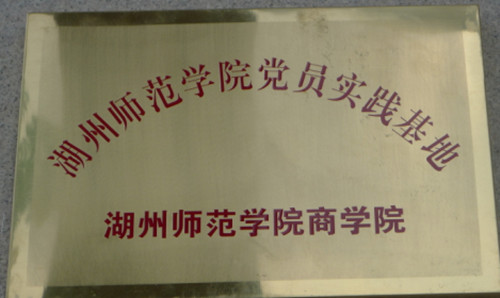 湖州师范学院党员实践基地
湖州师范学院商学院